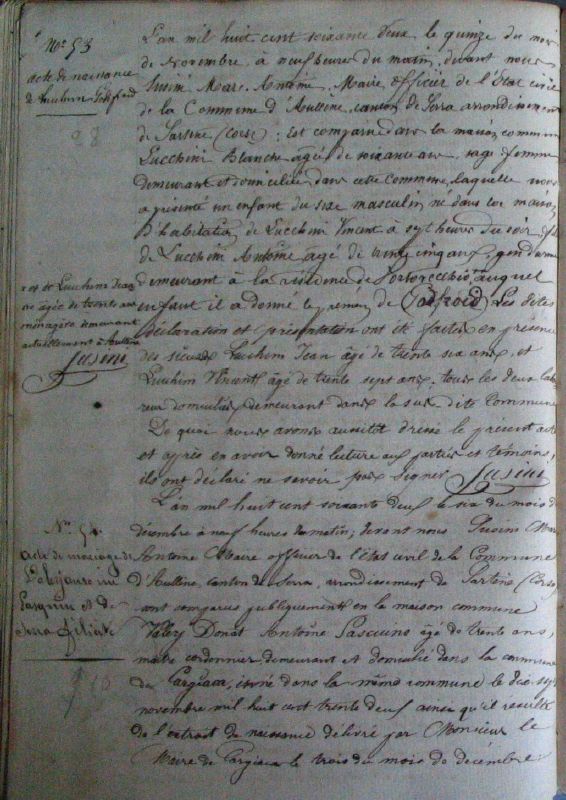 N.º 53
acte de naissance
de Lucchini Golfroid
L'an mil huit cent soixante deux le quinze du mois
de Novembre, à neuf heures du matin, devant nous
Susini Marc Antoine, Maire, officier de l'État civil
de la Commune d'Aullene, canton de Serra arrondissement
de Sartène (Corse) est comparue dans la maison commune
Lucchini Blanche âgée de soixante ans, sage femme
demeurant et domiciliée dans cette Commune, laquelle nous
a présenté un enfant du sexe masculin né dans la maison
d'habitation de Lucchini Vincent à sept heures du soir, fils
de Lucchini Antoine âgé de vingt cinq ans, gendarme
demeurant à la résidence de Portovecchio, auquel
enfant il a donné le prénom de Golfroid. Les dites
déclaration et présentation ont été faites en présence
des sieurs Lucchini Jean âgé de trente six ans, et
Lucchini Vincent, âgé de trente sept ans, tous les deux
domiciliés demeurant dans la sus dite Commune
De quoi nous avons aussitôt dressé le présent acte
et après en avoir donné lecture aux parties et témoins,
ils ont déclaré ne savoir pas signer Susini
et de Lucchini
âgée de trente ans
ménagère demeurant
actuellement à Aullene
Susini
N.º 54
acte de mariage de
Pasquin et de
Serra Félicité
L'an mil huit cent soixante deux le six du mois de
décembre à neuf heures du matin; devant nous Susini Marc
Antoine Maire officier de l'état civil de la Commune
d'Aullene, canton de Serra, arrondissement de Sartène (Corse)
sont comparus publiquement en la maison commune
Valery Donat Antoine Pascuino âgé de trente ans,
maître cordonnier, demeurant et domicilié dans la commune
de Cargiaca, né dans la même commune le dix sept
novembre mil huit cent trente deux ainsi qu'il résulte
de l'extrait de naissance délivré par Monsieur le
Maire de Cargiaca le trois du mois de décembre